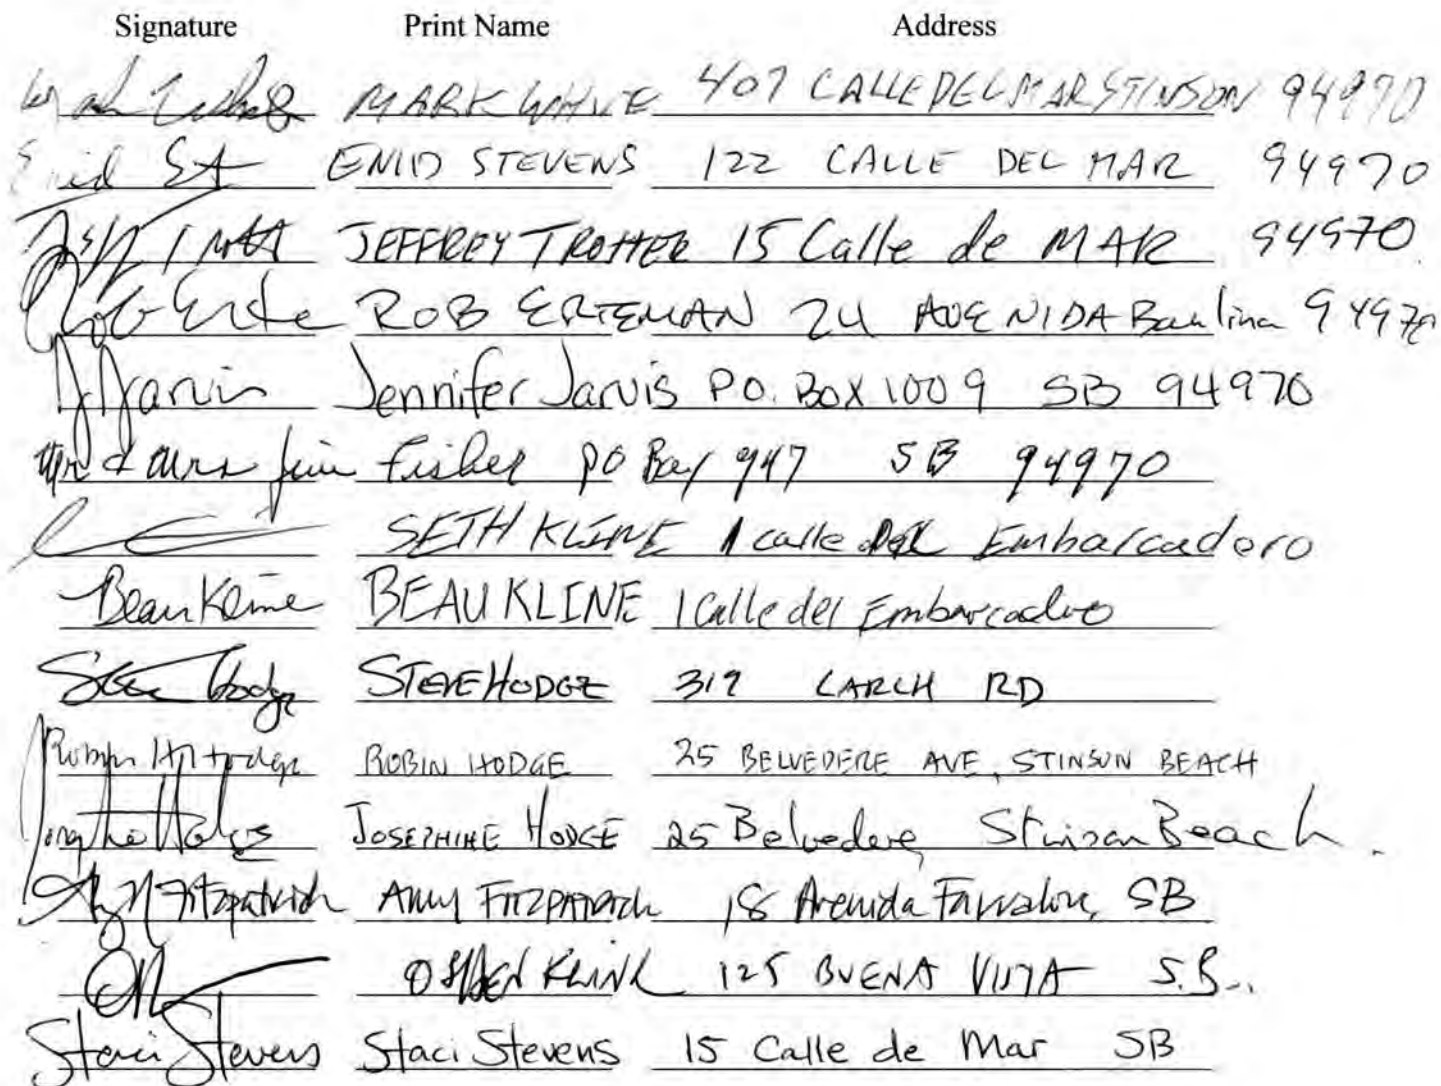 Signature Print Name Address
MARK WHITE 407 CALLE DEL MAR STINSON 94970
Enid St ENID STEVENS 122 CALLE DEL MAR 94970
Jeff Trott JEFFREY TROTTER 15 Calle de MAR 94970.
Rob ROB ERTEMAN 24 AVENIDA Baulina 94970
J Jarvis Jennifer Jarvis P.O. Box 1009 SB 94970
Mr & Mrs Jim Fisher PO Box 947 SB 94970
SETH KLINE 1 calle DEL Embarcadero
Beau Kline BEAU KLINE 1 Calle del Embarcadero
Steve Hodge STEVE HODGE 319 LARCH RD
Robin Hodge ROBIN HODGE 25 BELVEDERE AVE, STINSON BEACH
JOSEPHINE HODGE 25 Belvedere, Stinson Beach.
Fitzpatrick AMY FITZPATRICK 18 Avenida Farralone, SB
KLINE 125 BUENA VISTA S.B..
Staci Stevens Staci Stevens 15 Calle de Mar SB